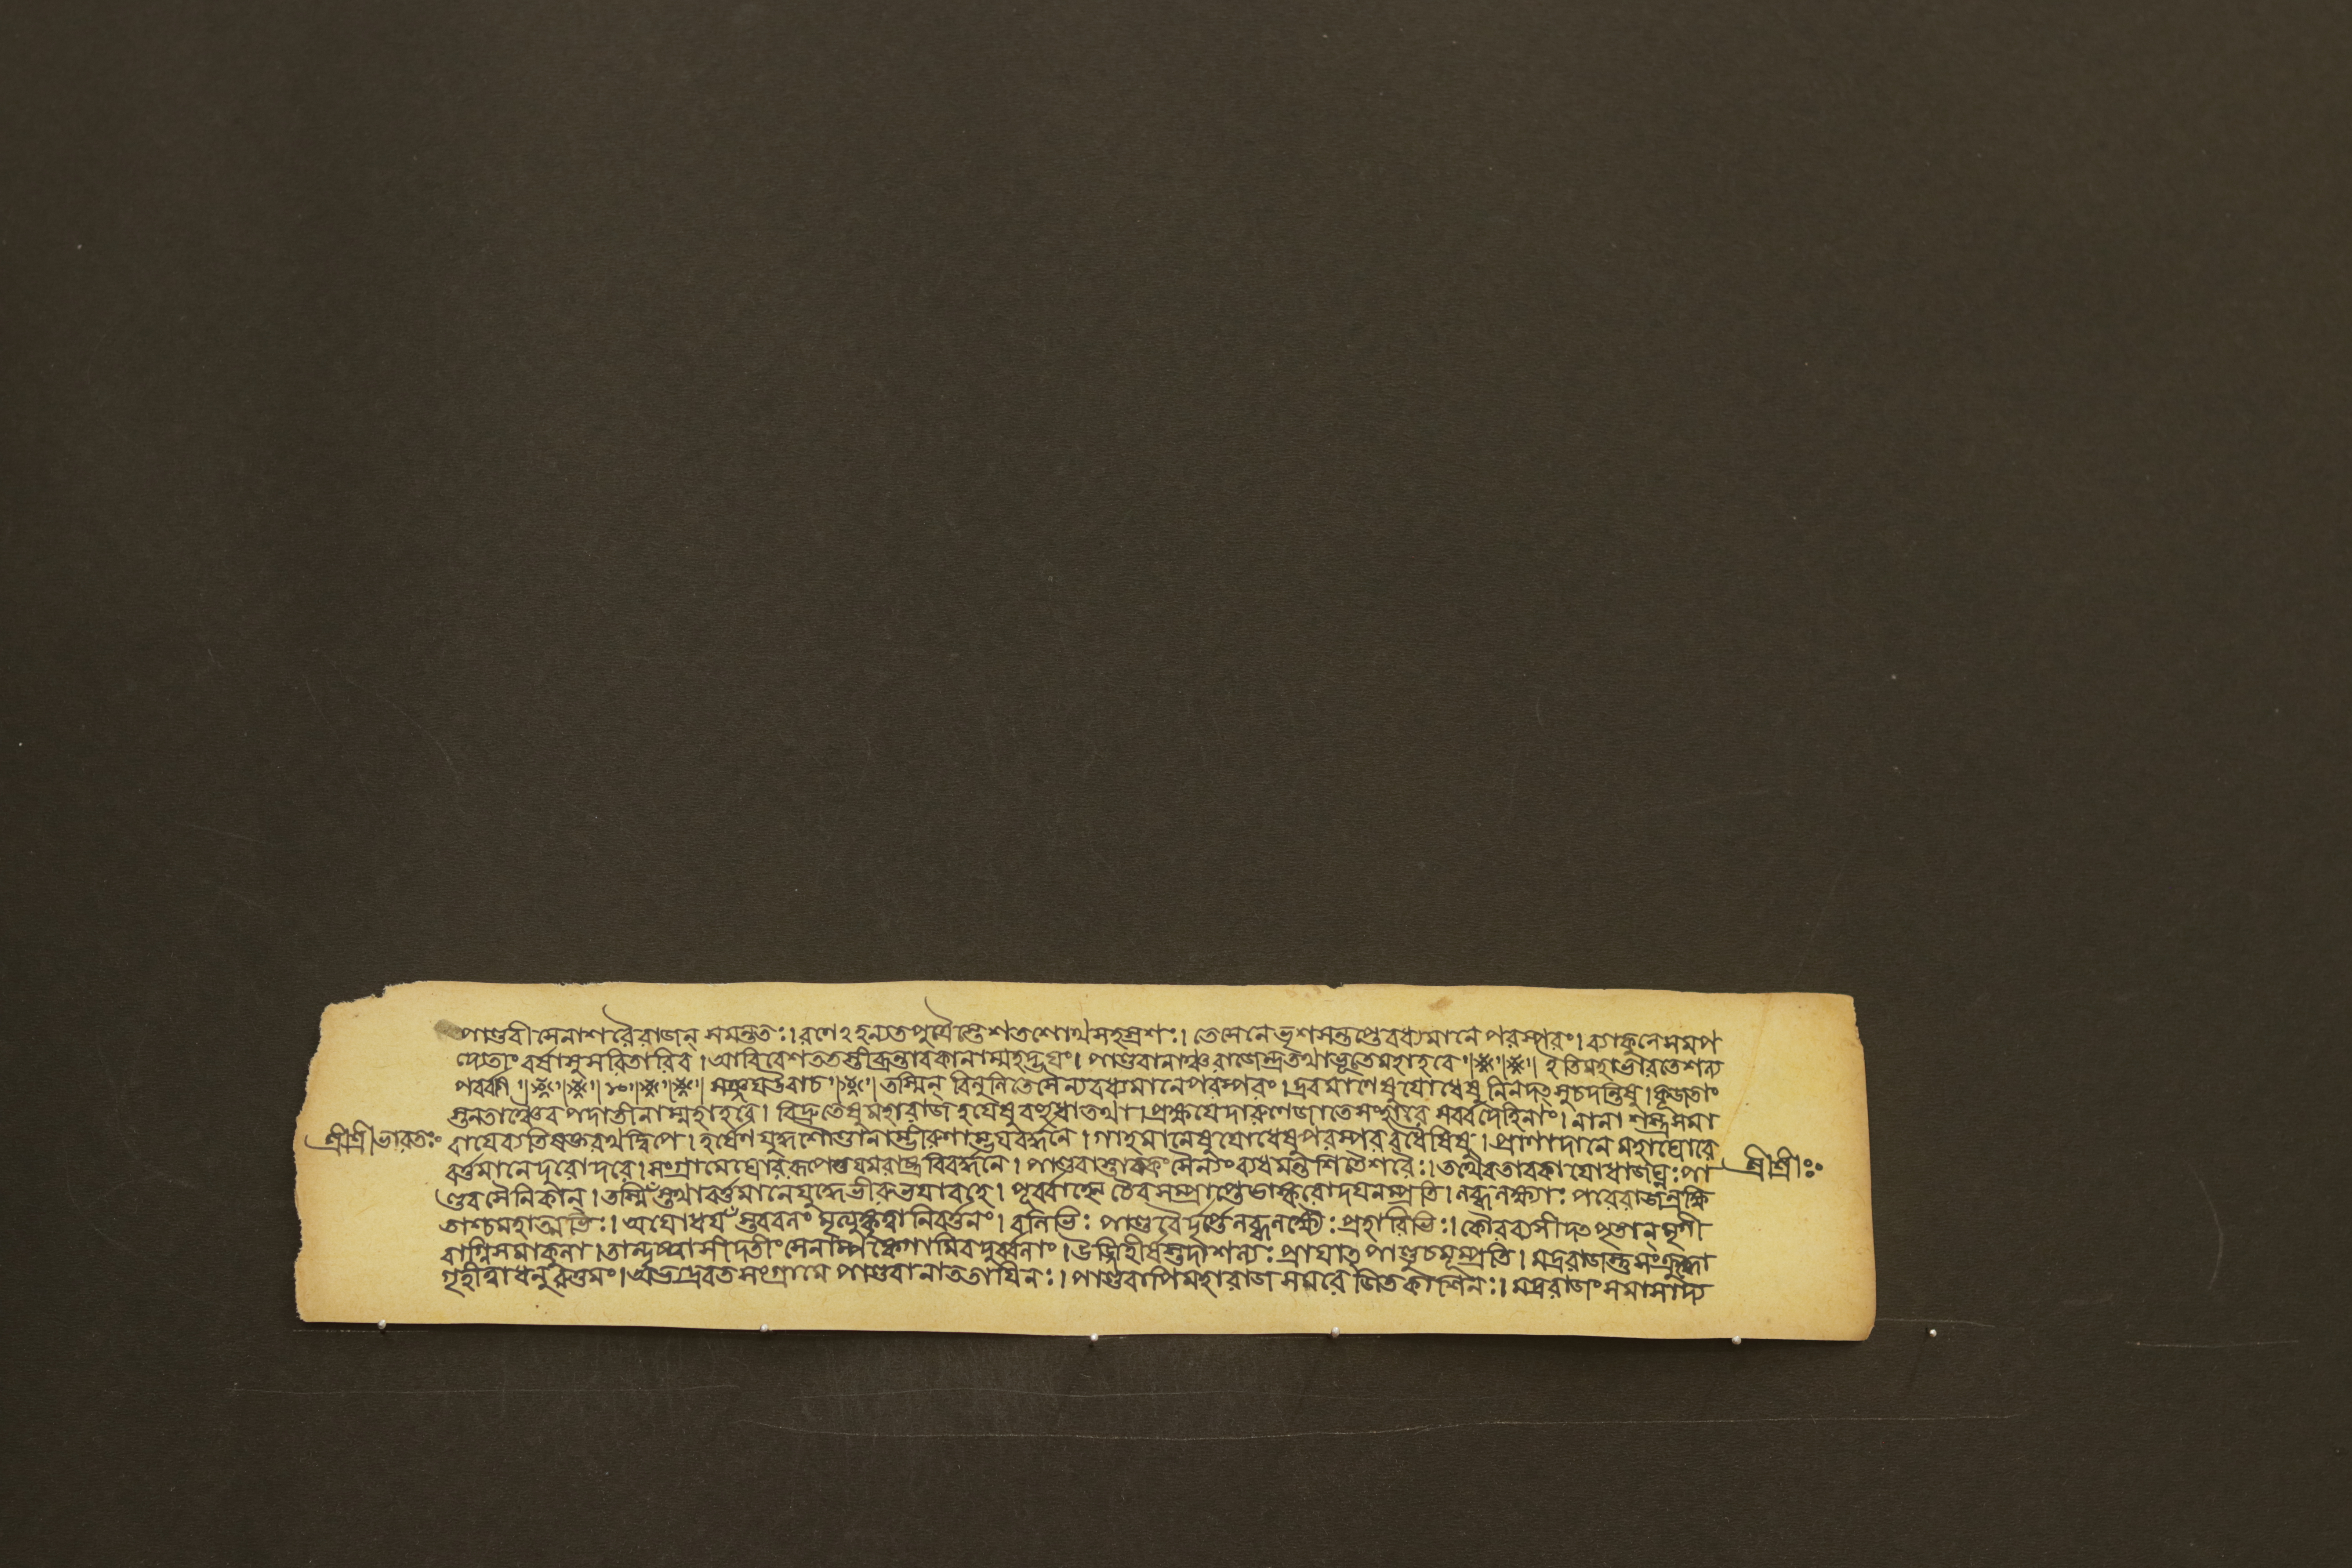 পাণ্ডবী সেনাশরৈরাজন্ সমন্ততঃ। রণেঽহন্যতপুত্রৈস্তেশতশোথসহস্রশঃ। তেসেনেভৃশসন্তপ্তেবধ্যমানে পরস্পরং। ব্যাকুলেসমপ
দ্যেতাং বর্ষাসুসরিতারিব। আবিবেশততস্তীব্রন্তাবকানাম্মহদ্ভয়ং। পাণ্ডবানাঞ্চরাজেন্দ্রতথাভূতেমহাহবে॥ ॥ ॥ ইতিমহাভারতেশল্য
পর্ব্বণি॥ ॥ ॥১০॥ ॥ ॥ সঞ্জয়উবাচ॥ ॥ তস্মিন্ বিলুলিতেসৈন্যবধ্যমানেপরস্পরং। দ্রবমাণেষুযোধেষু নিনদৎসুচদন্তিষু। কূজতাং
স্তনতাঞ্চৈব পদাতীনাম্মহাহবে। বিদ্রুতেষুমহারাজহয়েষুবহুধাতথা। প্রক্ষয়েদারুণেজাতেসংহারে সর্ব্বদেহিনাং। নানা শস্ত্রসমা
শ্রীশ্রীভারতঃ বায়েব্যতিষক্তরথদ্বিপে। হর্ষণেযুদ্ধশৌণ্ডানাম্ভীরুণাম্ভয়বর্দ্ধনে। গাহমানেষুযোধেষুপরস্পরবধৈষিষু। প্রাণাদানে মহাঘোরে
বর্ত্তমানেদুরোদরে। সংগ্রামেঘোররূপেতুযমরাষ্ট্রবিবর্দ্ধনে। পাণ্ডবাস্তাবকং সৈন্যংব্যধমন্তশিতৈশরৈঃ। তথৈবতাবকাযোধাজঘ্নুঃপা শ্রীশ্রীঃ
ণ্ডবসৈনিকান্। তস্মিঁস্তথাবর্ত্তমানেযুদ্ধেভীরুভয়াবহে। পূর্ব্বাহ্নে চৈবসম্প্রাপ্তেভাস্করোদয়নম্প্রতি। লব্ধলক্ষ্যাঃ পরেরাজন্রক্ষি
তাশ্চমহাত্মভিঃ। অযোধয়ঁস্তববলং মৃত্যুঙ্কৃত্বানিবর্ত্তনং। বলিভিঃ পাণ্ডবৈর্দৃপ্তৈর্লব্ধলক্ষ্যৈঃ প্রহারিভিঃ। কৌরব্যসীদৎ পৃতনামৃগী
বাগ্নিসমাকুলা। তান্দৃষ্ট্বাসীদতীং সেনাম্পঙ্কেগামিবদুর্ব্বলাং। উজ্জিহীর্ষুস্তদাশল্যঃ প্রায়াৎপাণ্ডুচমূম্প্রতি। মদ্ররাজস্তুসংক্রুদ্ধো
গৃহীত্বাধনুরুত্তমং। অভ্যদ্রবতসংগ্রামে পাণ্ডবানাততায়িনঃ। পাণ্ডবাপিমহারাজ সমরে জিতকাশিনঃ। মদ্ররাজং সমাসাদ্য